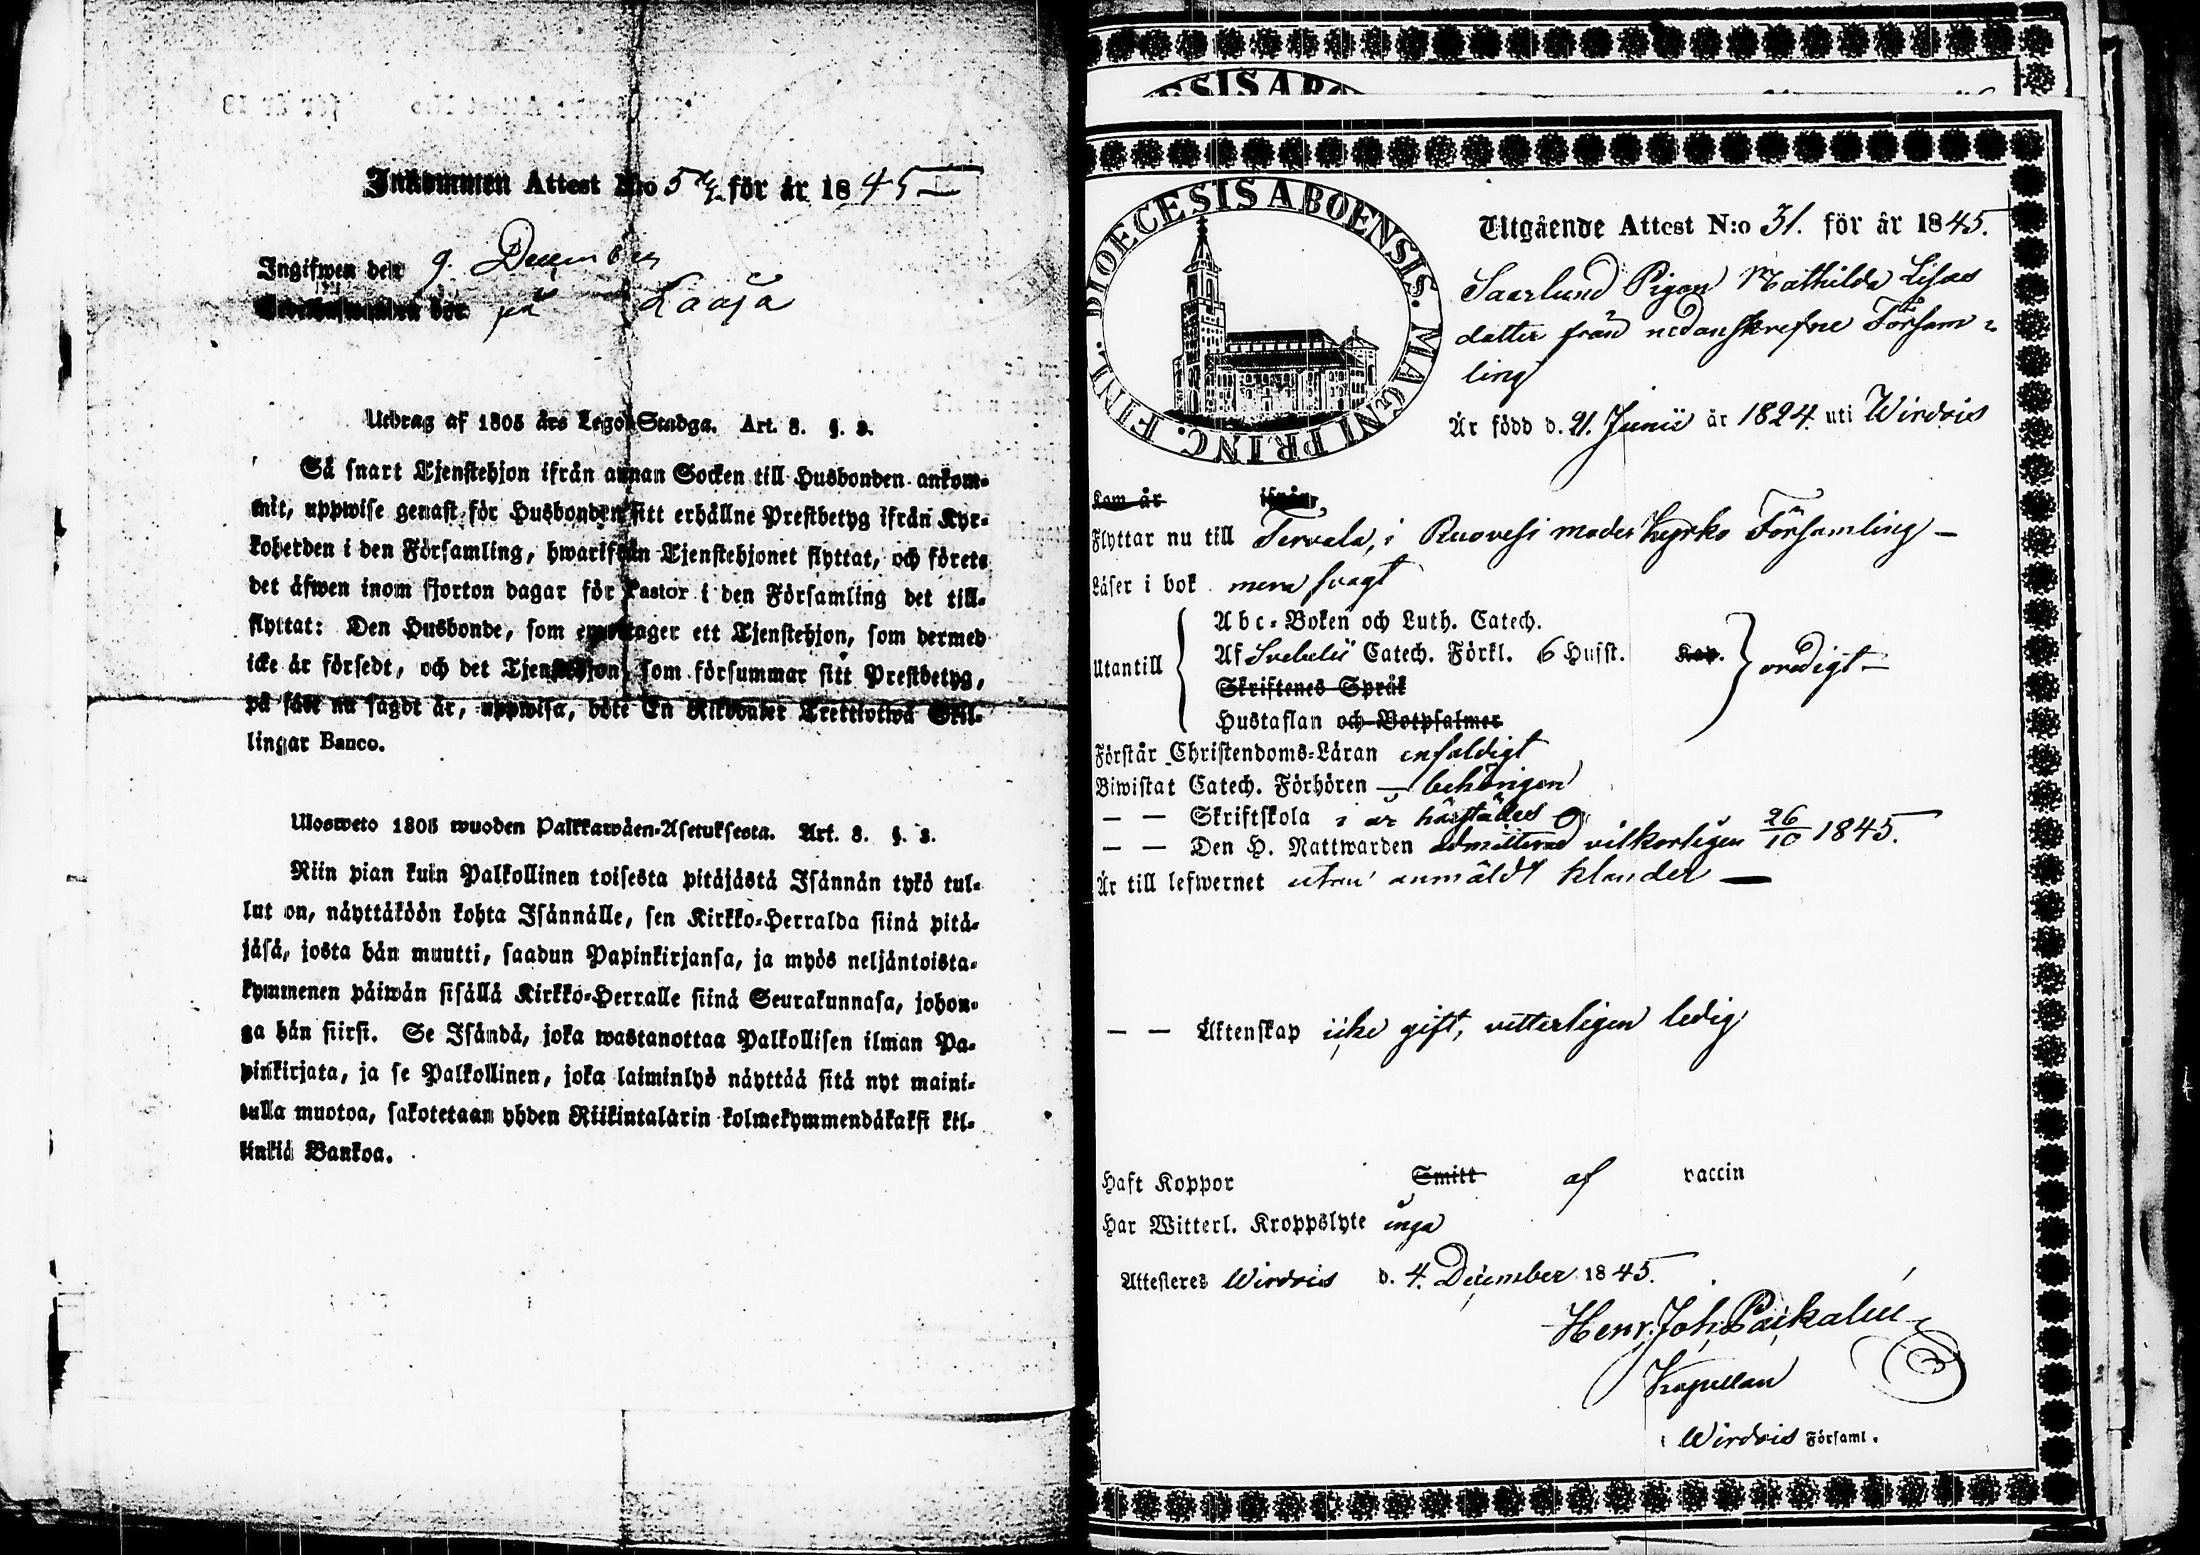 Inkommen Attest N:o 57. för år 1845
Ingifwen den 9. December
på Laaja
Utdrag af 1805 års Lego-Stadga. Art. 8. §. 3.
Så snart Tjenstehjon ifrån annan Socken till Husbonden ankom-
mit, uppwise genast för Husbonden sitt erhållne Prestbetyg ifrån Kyr-
koherden i den Församling, hwarifrån Tjenstehjonet flyttat, och förete
det äfwen inom fjorton dagar för Pastor i den Församling det till-
flyttat: Den Husbonde, som emottager ett Tjenstehjon, som dermed
icke är försedt, och det Tjenstehjon, som försummar sitt Prestbetyg,
på sätt nu sagdt är, uppwisa, böte En Riksdaler Trettiotwå Skil-
lingar Banco.
Ulosweto 1805 wuoden Palkkawäen-Asetuksesta. Art. 8. §. 3.
Niin pian kuin Palkollinen toisesta pitäjästä Isännän tykö tul-
lut on, näyttäköön kohta Isännälle, sen Kirkko-Herralda siinä pitä-
jäsä, josta hän muutti, saadun Papinkirjansa, ja myös neljäntoista-
kymmenen päiwän sisällä Kirkko-Herralle siinä Seurakunnasa, johon-
ga hän siirsi. Se Isändä, joka wastanottaa Palkollisen ilman Pa-
pinkirjata, ja se Palkollinen, joka laiminlyö näyttää sitä nyt maini-
tulla muotoa, sakotetaan yhden Riikintalarin kolmekymmendäkaksi kil-
linkiä Bankoa.
DIOECESIS ABOENSIS. MAGNI PRINC. FINL.
Utgående Attest N:o 31. för år 1845.
Saarlund Pigan Mathilda Lisas
dotter från nedanskrefne Försam-
ling
Är född d. 21. Junii år 1824. uti Wirdois
Kom år ifrån
Flyttar nu till Tervala, i Ruovesi moder kyrko Församling –
Läser i bok mera svagt
Utantill
Abc-Boken och Luth. Catech.
Af Svebelii Catech. Förkl. 6 Hufst. Kap.
Skriftenes Språk
Hustaflan och Botpsalmer
oredigt –
Förstår Christendoms-Läran enfaldigt
Biwistat Catech. Förhören – behörigen
— — Skriftskola i år härstädes
— — Den H. Nattwarden admitterad vilkorligen 26/10 1845.
Är till lefwernet utan anmäldt klander —
— — Äktenskap icke gift, vitterligen ledig
Haft Koppor Smitt af vaccin
Har Witterl. Kroppslyte inga
Attesteres Wirdois d. 4. December 1845.
Henr. Joh.
Kapellan
i Wirdois Församl.